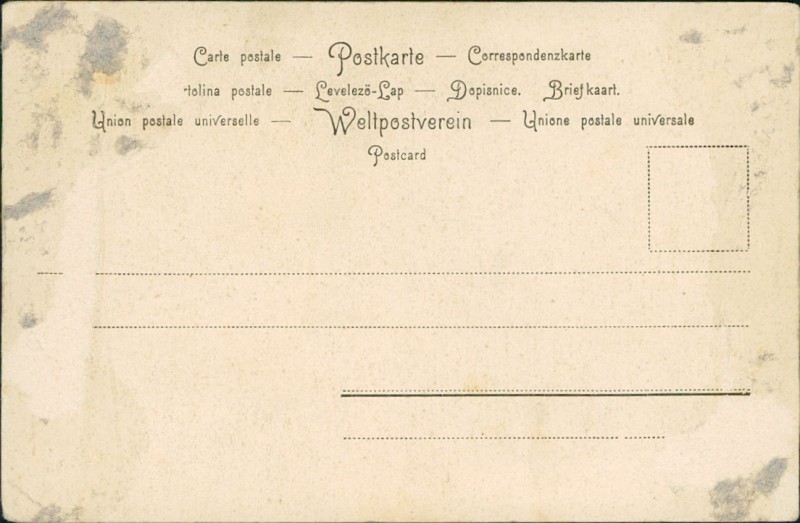 Carte postale — Postkarte — Correspondenzkarte
tolina postale — Levelező-Lap — Dopisnice. Briefkaart.
Union postale universelle — Weltpostverein — Unione postale universale
Postcard